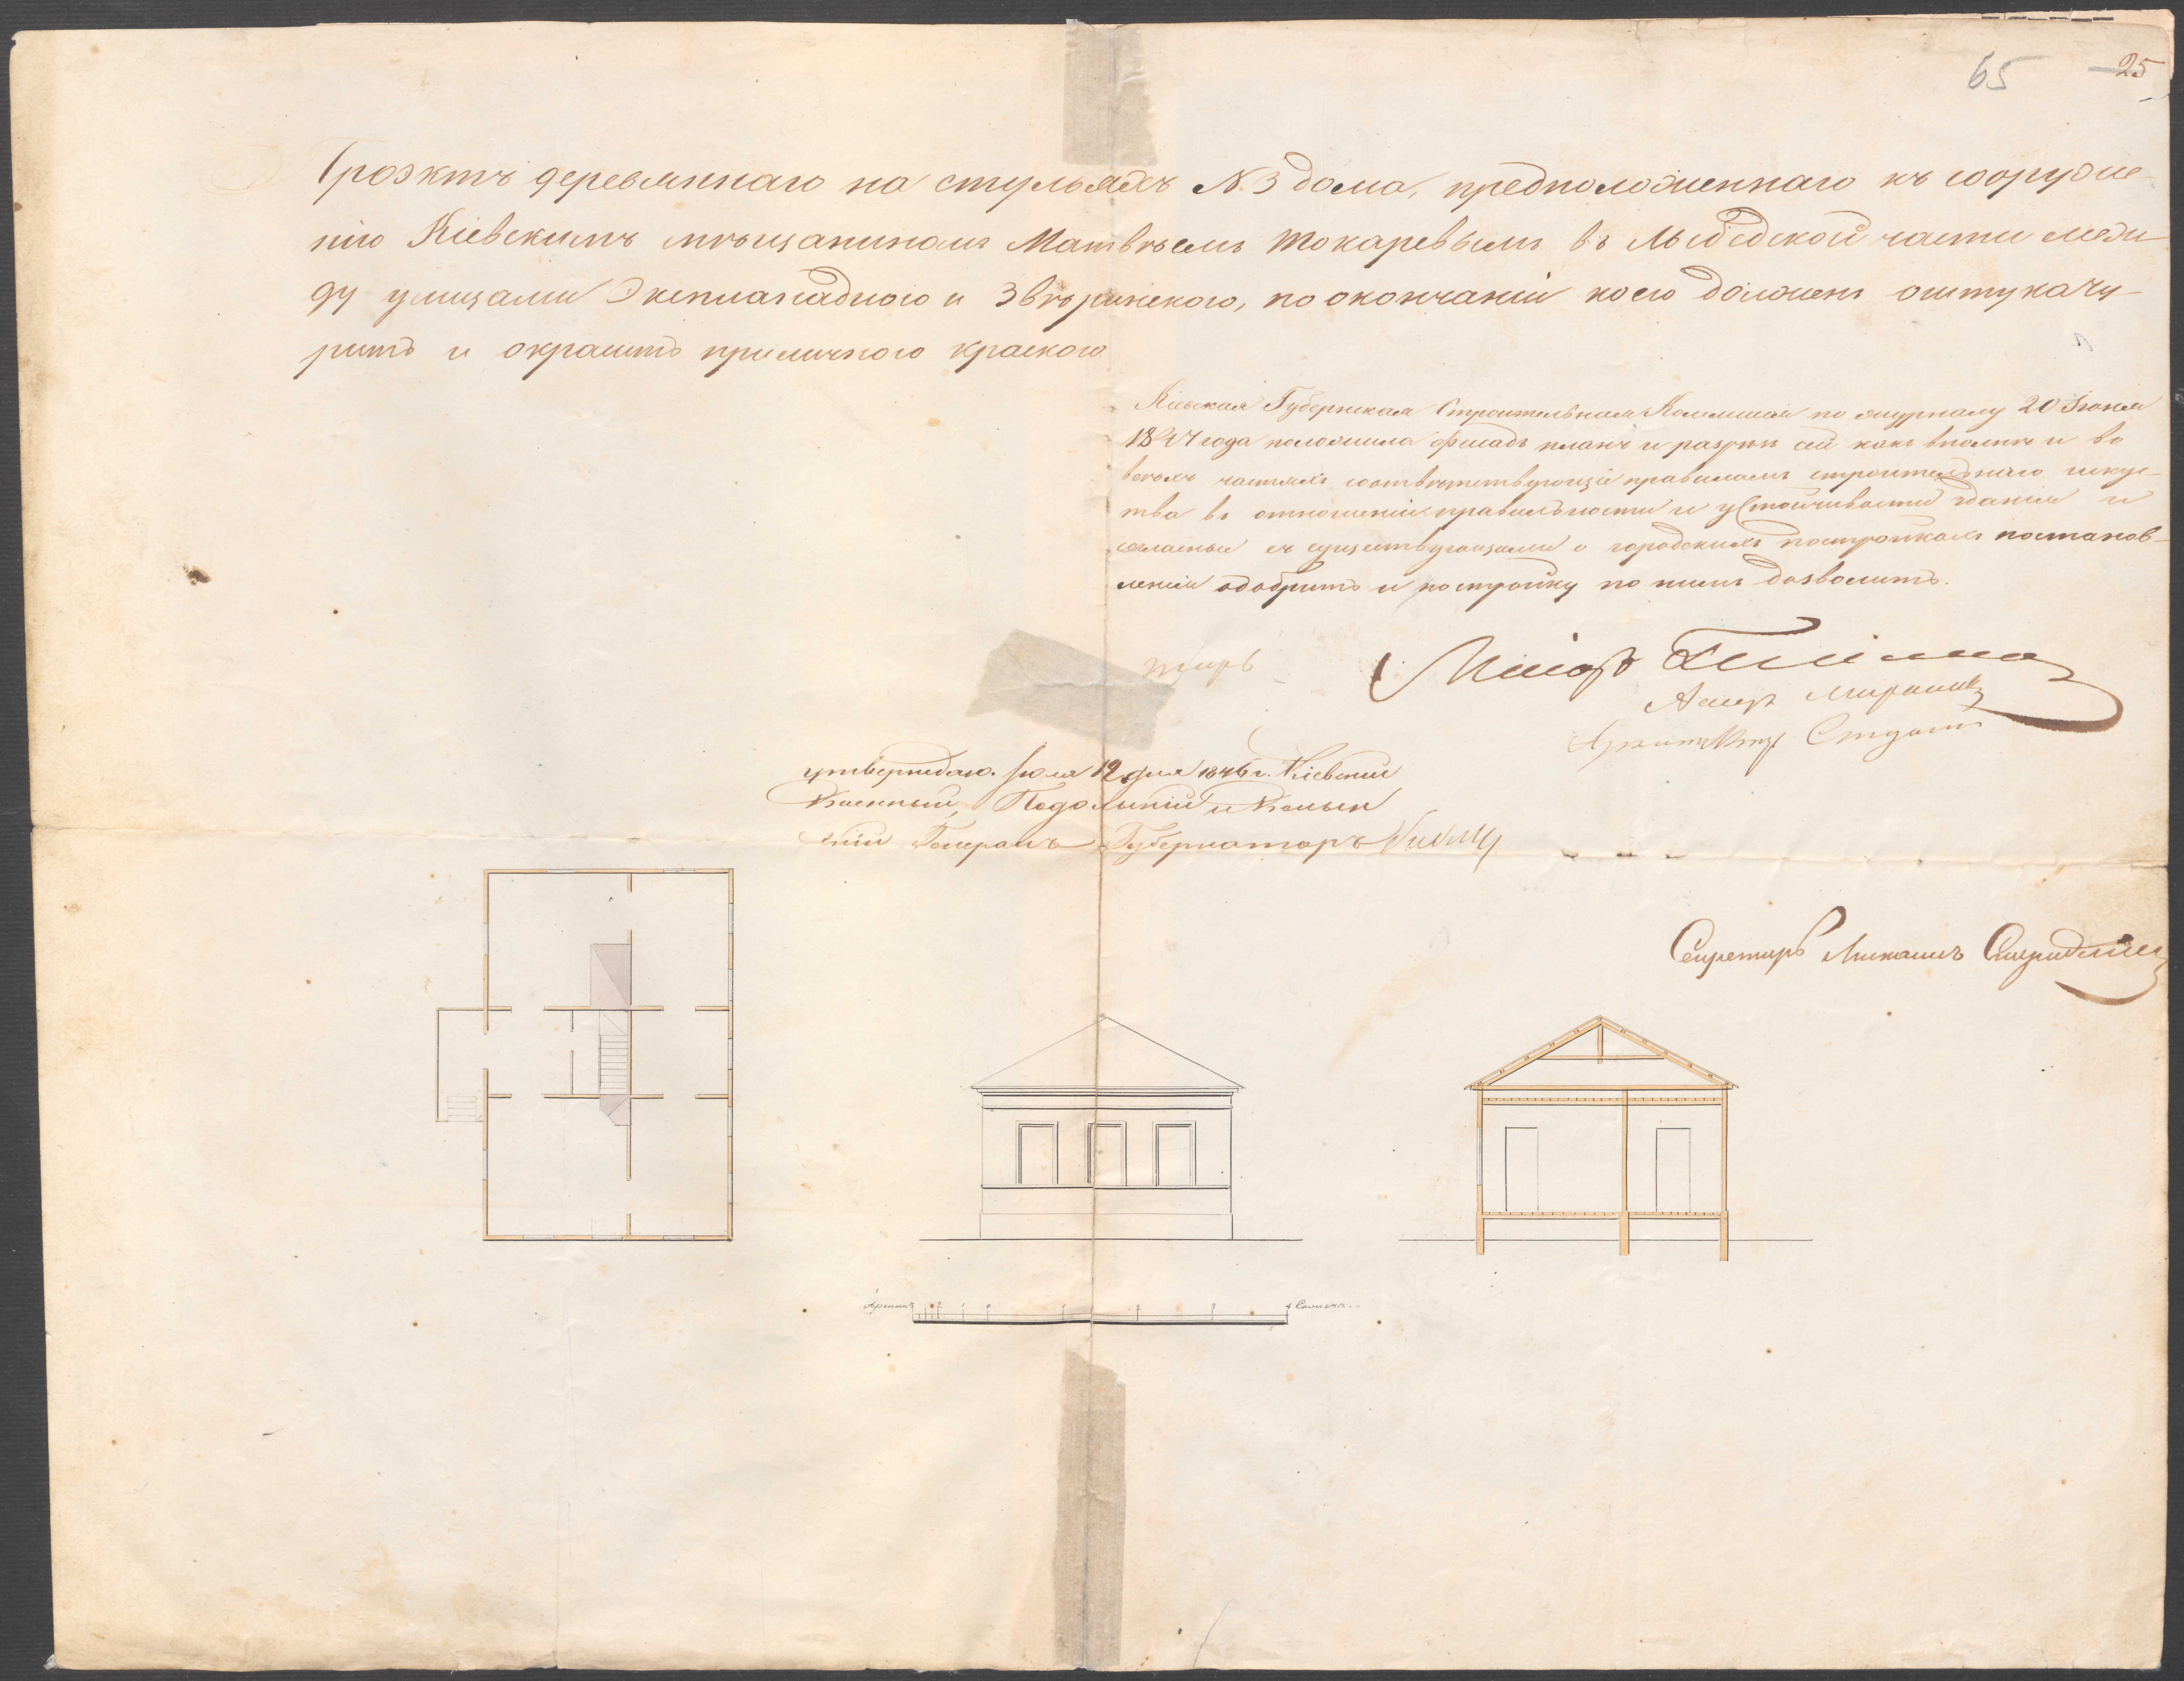 65 25
Проэктъ деревяннаго на стульяхъ N. 3 дома, предположеннаго къ сооруже-
нію Кіевскимъ мѣщаниномъ Матвѣемъ Токаревымъ въ Лыбедской части меж-
ду улицами Эспланадною и Звѣринскою, по окончаніи коего долженъ оштукату-
рить и окрасить приличною краскою
Кіевская Губернская Строительная Комиссія по журналу 20 Іюня
18 года положила фасадъ планъ и разрѣзъ сей какъ вполнѣ и во
всѣхъ частяхъ соотвѣтствующіе правиламъ строительнаго искус-
тва въ отношеніи правильности и устойчивости зданія и
согласные съ существующими о городскихъ постройкахъ постанов-
леніи одобрить и постройку по нимъ дозволить.
Маіоръ
Архитекторъ
утверждаю. Іюля 12 дня 1846 г. Кіевскій
Военный, Подольскій и Волын
скій Генералъ Губернаторъ
Секретарь
Аршинъ 3 2 1 0 1 2 3 4 Сажень